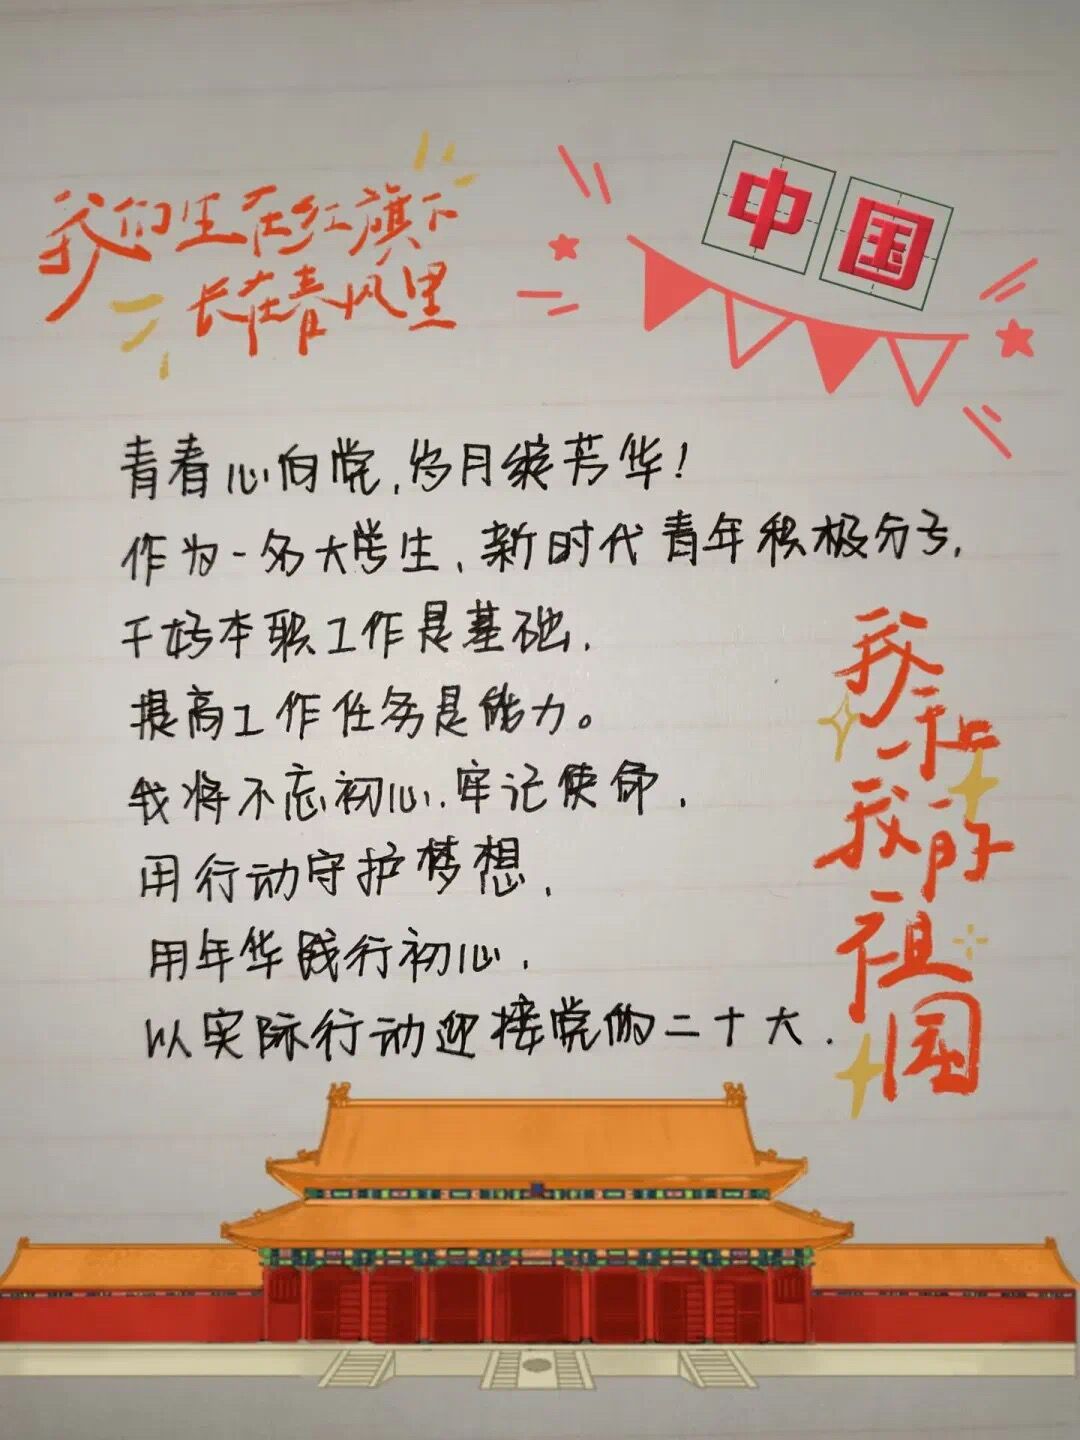 我们生在红旗下
长在春风里
中国
青春心向党,岁月绽芳华!
作为一名大学生,新时代青年积极分子,
干好本职工作是基础,
提高工作任务是能力。
我将不忘初心,牢记使命,
用行动守护梦想,
用年华践行初心,
以实际行动迎接党的二十大.
我和
我的
祖国